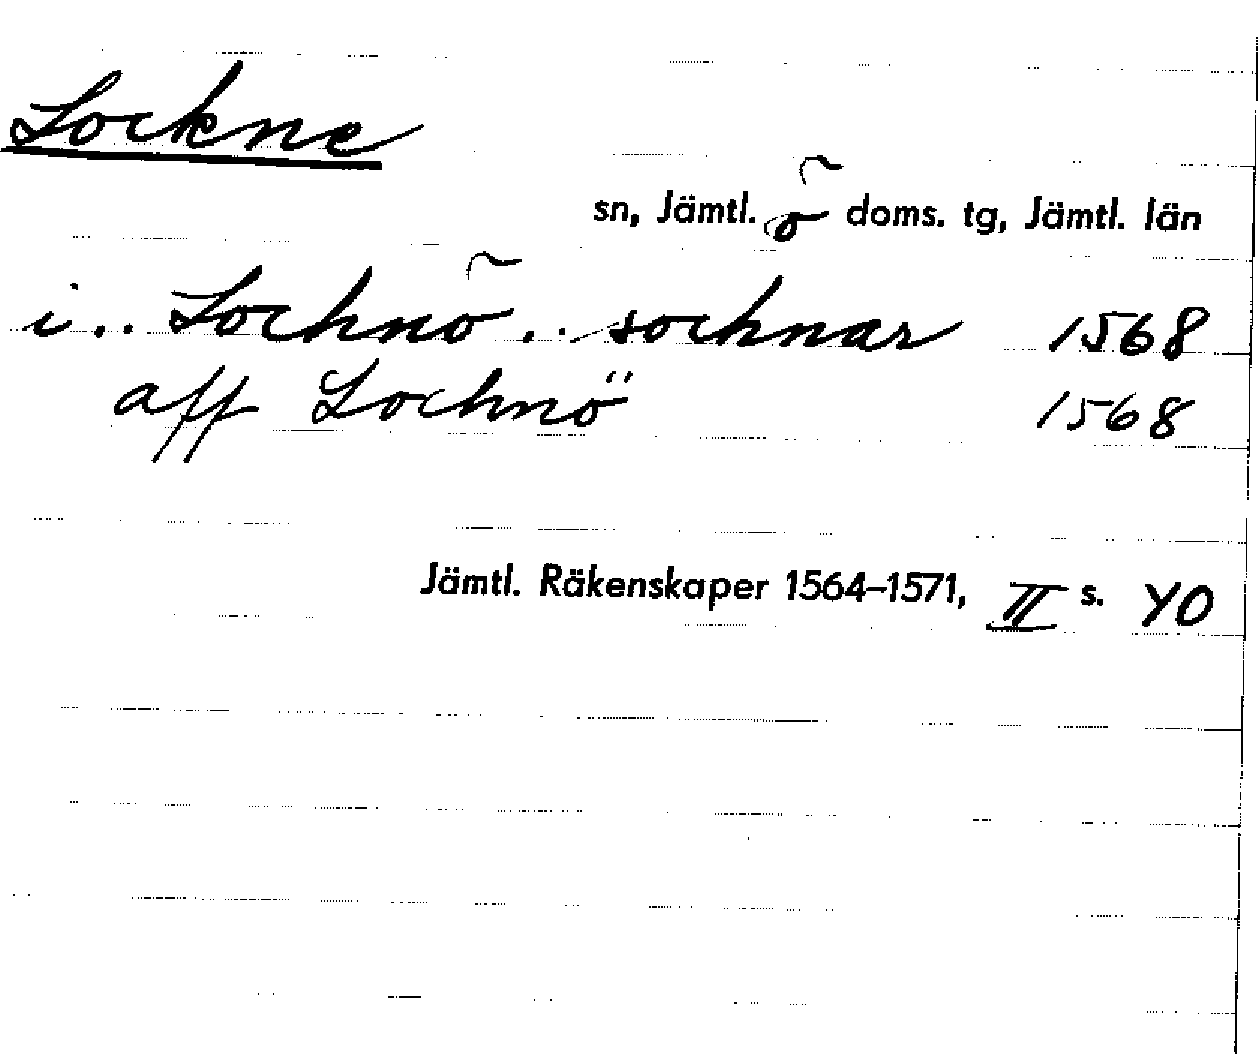 Lockne
sn, Jämtl. ö doms. tg, Jämtl. län
i.. Lochnö.. sochnar 1568
aff Lochnö 1568
Jämtl. Räkenskaper 1564–1571, II s. 40